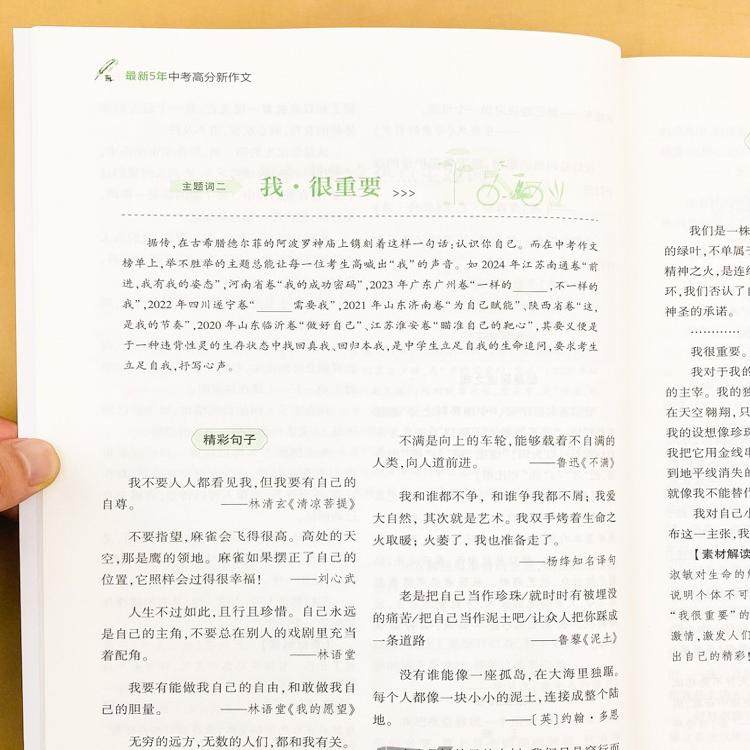 最新5年中考高分新作文
主题词二
我·很重要 >>>
据传,在古希腊德尔菲的阿波罗神庙上镌刻着这样一句话:认识你自己。而在中考作文
榜单上,举不胜举的主题总能让每一位考生高喊出“我”的声音。如 2024 年江苏南通卷“前
进,我有我的姿态”,河南省卷“我的成功密码”,2023 年广东广州卷“一样的______,不一样的
我”,2022 年四川遂宁卷“______需要我”,2021 年山东济南卷“为自己赋能”、陕西省卷“这,
是我的节奏”,2020 年山东临沂卷“做好自己”、江苏淮安卷“瞄准自己的靶心”,其要义便是
于一种违背性灵的生存状态中找回真我、回归本我,是中学生立足自我的生命追问,要求考生
立足自我,抒写心声。
精彩句子
我不要人人都看见我,但我要有自己的
自尊。 ——林清玄《清凉菩提》
不要指望,麻雀会飞得很高。高处的天
空,那是鹰的领地。麻雀如果摆正了自己的
位置,它照样会过得很幸福! ——刘心武
人生不过如此,且行且珍惜。自己永远
是自己的主角,不要总在别人的戏剧里充当
着配角。 ——林语堂
我要有能做我自己的自由,和敢做我自
己的胆量。 ——林语堂《我的愿望》
无穷的远方,无数的人们,都和我有关。
不满是向上的车轮,能够载着不自满的
人类,向人道前进。 ——鲁迅《不满》
我和谁都不争,和谁争我都不屑;我爱
大自然,其次就是艺术。我双手烤着生命之
火取暖;火萎了,我也准备走了。
——杨绛知名译句
老是把自己当作珍珠/就时时有被埋没
的痛苦/把自己当作泥土吧/让众人把你踩成
一条道路 ——鲁藜《泥土》
没有谁能像一座孤岛,在大海里独踞。
每个人都像一块小小的泥土,连接成整个陆
地。 ——[英]约翰·多恩
我们是一株
的绿叶,不单属于
精神之火,是连绵
环,我们否认了自
神圣的承诺。
…………
我很重要。
我对于我的
的主宰。我的独
在天空翱翔,只
我的设想像珍珠
我把它用金线串
到地平线消失的
就像我不能替代
我对自己小
布这一主张,我
【素材解读
淑敏对生命的
说明个体不可
“我很重要”的
激情,激发人们
出自己的精彩